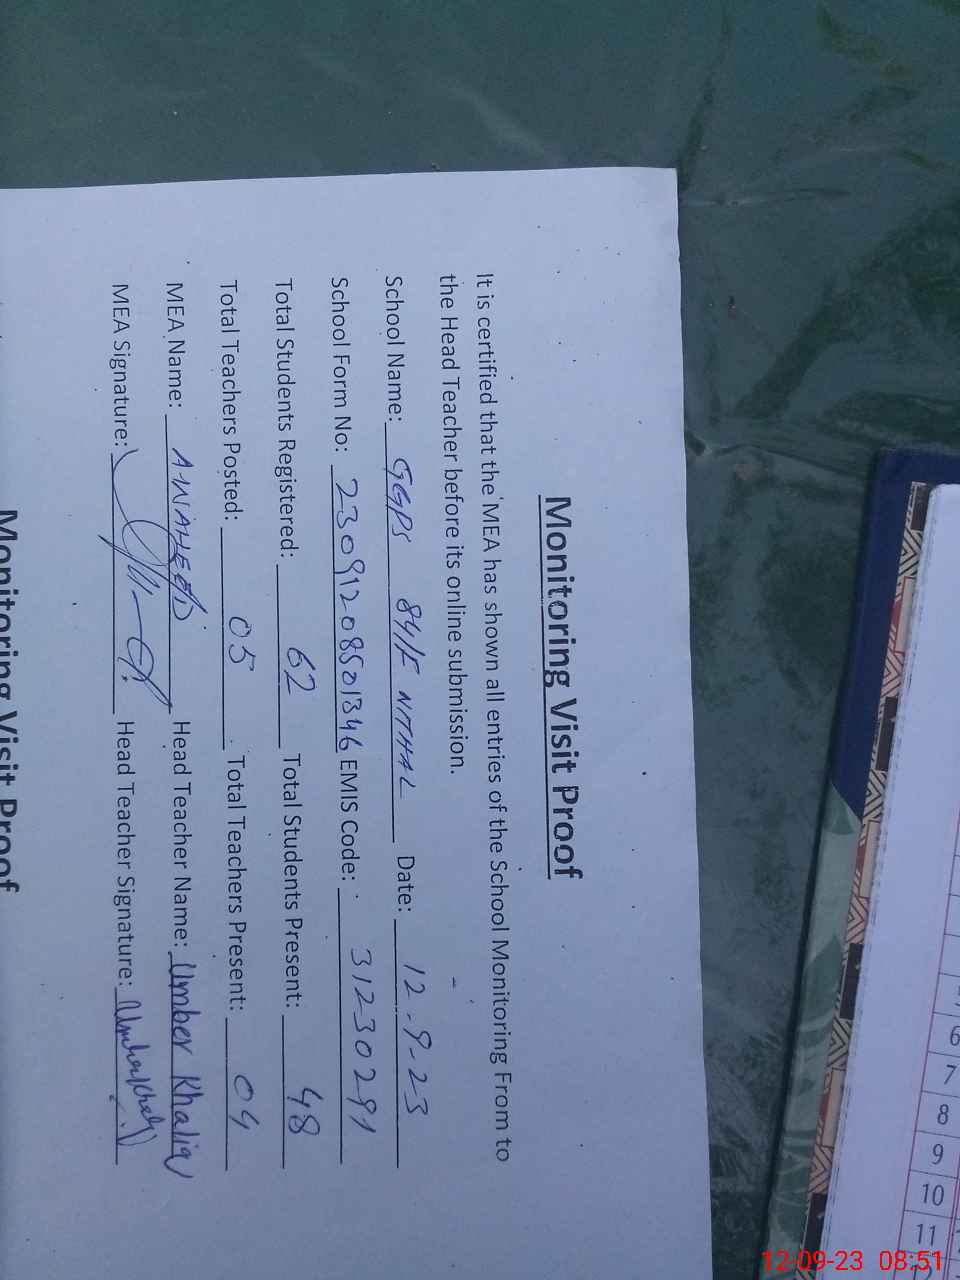 Monitoring Visit Proof
It is certified that the MEA has shown all entries of the School Monitoring From to
the Head Teacher before its online submission.
School Name: GGPS 84/F NTHAL Date: 12-9-23
School Form No: 23091208501346 EMIS Code: 31230291
Total Students Registered: 62 Total Students Present: 48
Total Teachers Posted: 05 Total Teachers Present: 04
MEA Name: A-WAHEED Head Teacher Name: Umber Khaliq
MEA Signature: Head Teacher Signature: Umber Khaliq
Monitoring Visit Proof
6
7
8
9
10
11
12-09-23 08:51